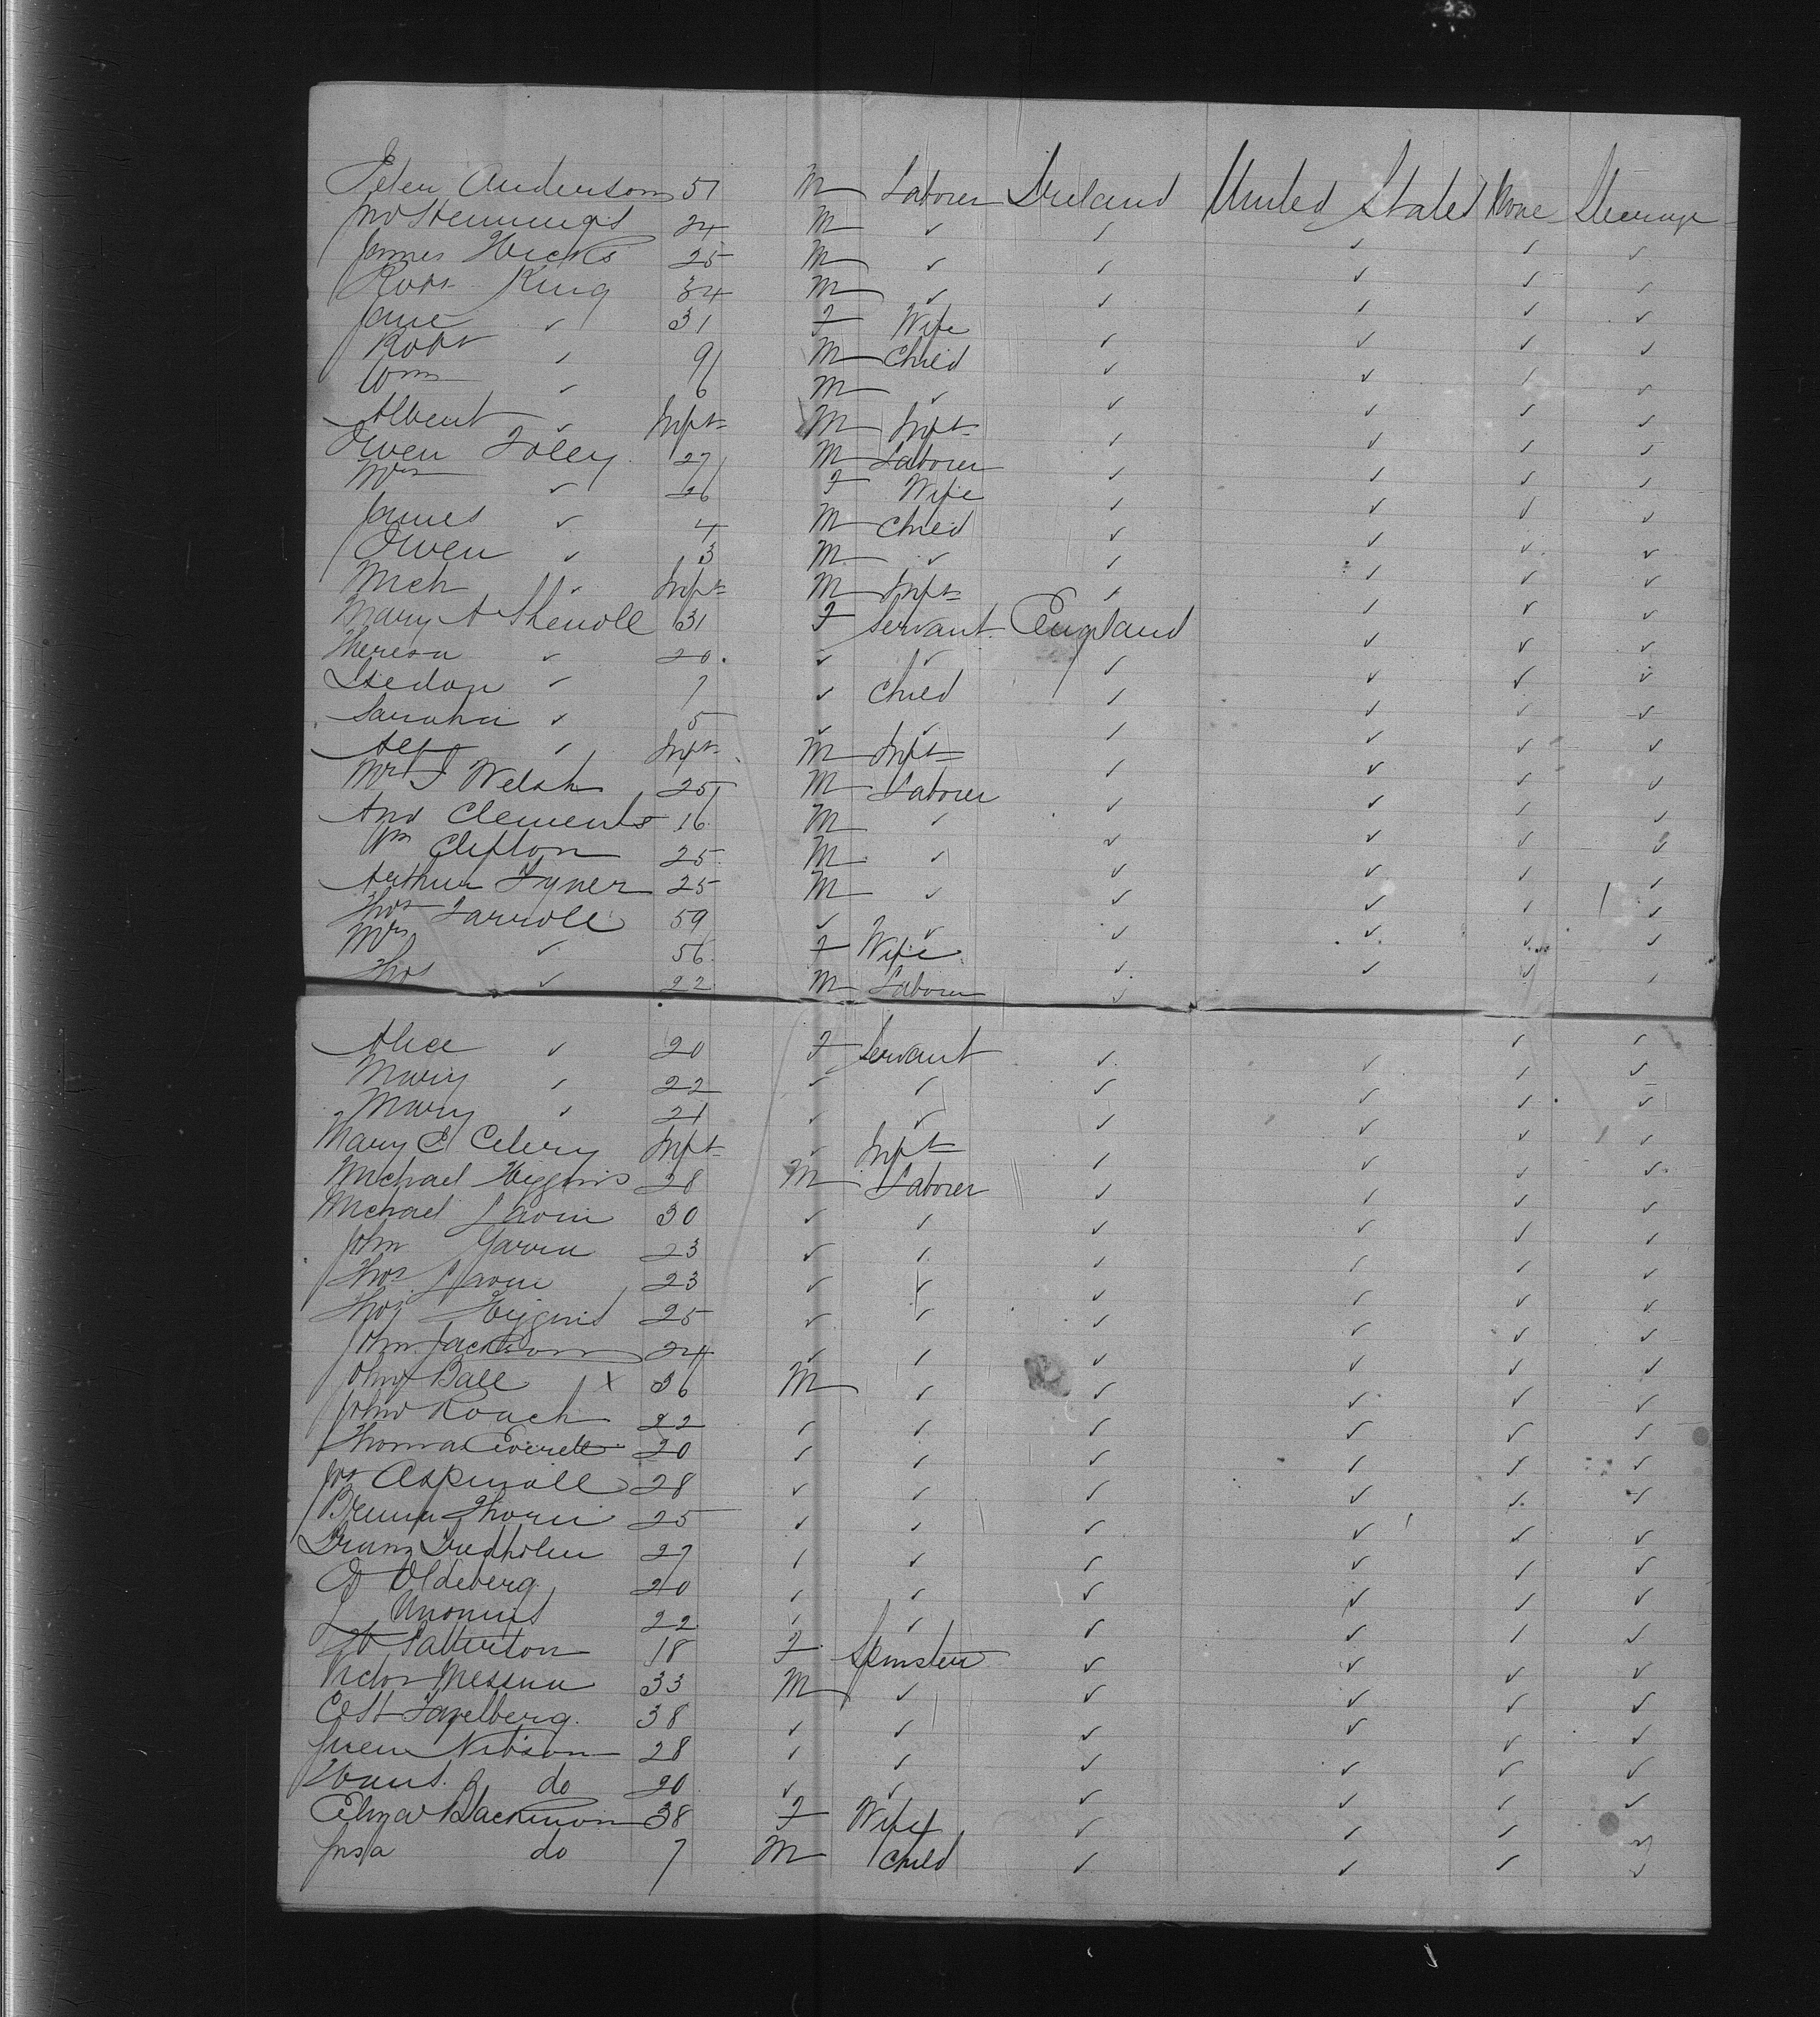 Peter Anderson 51 M Laborer Ireland United States None Steerage
Jno Hennings 24 M ✓ ✓ ✓ ✓ ✓
James Hicks 25 M ✓ ✓ ✓ ✓ ✓
Robt King 34 M ✓ ✓ ✓ ✓ ✓
Jane ✓ 31 F Wife ✓ ✓ ✓ ✓
Robt ✓ 9 M Child ✓ ✓ ✓ ✓
Wm ✓ 6 M ✓ ✓ ✓ ✓ ✓
Albert ✓ Inft M Inft ✓ ✓ ✓ ✓
Owen Foley 27 M Laborer ✓ ✓ ✓ ✓
Mrs ✓ 26 F Wife ✓ ✓ ✓ ✓
James ✓ 4 M Child ✓ ✓ ✓ ✓
Owen ✓ 3 M ✓ ✓ ✓ ✓ ✓
Mich ✓ Inft M Inft ✓ ✓ ✓ ✓
Mary A 31 F Servant England ✓ ✓ ✓
Theresa ✓ 20 ✓ ✓ ✓ ✓ ✓ ✓
✓ 7 ✓ Child ✓ ✓ ✓ ✓
✓ 5 ✓ ✓ ✓ ✓ ✓ ✓
Alf ✓ Inft M Inft ✓ ✓ ✓ ✓
Welsh 25 M Laborer ✓ ✓ ✓ ✓
And Clements 16 M ✓ ✓ ✓ ✓ ✓
Wm Clifton 25 M ✓ ✓ ✓ ✓ ✓
Arthur Tyner 25 M ✓ ✓ ✓ ✓ ✓
Thos Farroll 59 ✓ ✓ ✓ ✓ ✓ ✓
Mrs ✓ 56 F Wife ✓ ✓ ✓ ✓
Thos ✓ 22 M Laborer ✓ ✓ ✓ ✓
Alice ✓ 20 F Servant ✓ ✓ ✓ ✓
Mary ✓ 22 ✓ ✓ ✓ ✓ ✓ ✓
Mary ✓ 21 ✓ ✓ ✓ ✓ ✓ ✓
Mary E Celery Inft ✓ Inft ✓ ✓ ✓ ✓
Michael Higgins 28 M Laborer ✓ ✓ ✓ ✓
Michael Gavin 30 ✓ ✓ ✓ ✓ ✓ ✓
John Gavin 23 ✓ ✓ ✓ ✓ ✓ ✓
Thos Gavin 23 ✓ ✓ ✓ ✓ ✓ ✓
Thos Higgins 25 ✓ ✓ ✓ ✓ ✓ ✓
John Jackson 24 ✓ ✓ ✓ ✓ ✓ ✓
John Ball X 36 M ✓ ✓ ✓ ✓ ✓
John Roach 22 ✓ ✓ ✓ ✓ ✓ ✓
Thomas Everett 20 ✓ ✓ ✓ ✓ ✓ ✓
Jos Aspinall 28 ✓ ✓ ✓ ✓ ✓ ✓
25 ✓ ✓ ✓ ✓ ✓ ✓
Franz 27 ✓ ✓ ✓ ✓ ✓ ✓
Oldeberg 20 ✓ ✓ ✓ ✓ ✓ ✓
22 ✓ ✓ ✓ ✓ ✓ ✓
Patterson 18 F Spinster ✓ ✓ ✓ ✓
Victor 33 M ✓ ✓ ✓ ✓ ✓
38 ✓ ✓ ✓ ✓ ✓ ✓
Nilsson 28 ✓ ✓ ✓ ✓ ✓ ✓
Hans do 20 ✓ ✓ ✓ ✓ ✓ ✓
Eliza Blackmon 38 F Wife ✓ ✓ ✓ ✓
do 7 M Child ✓ ✓ ✓ ✓